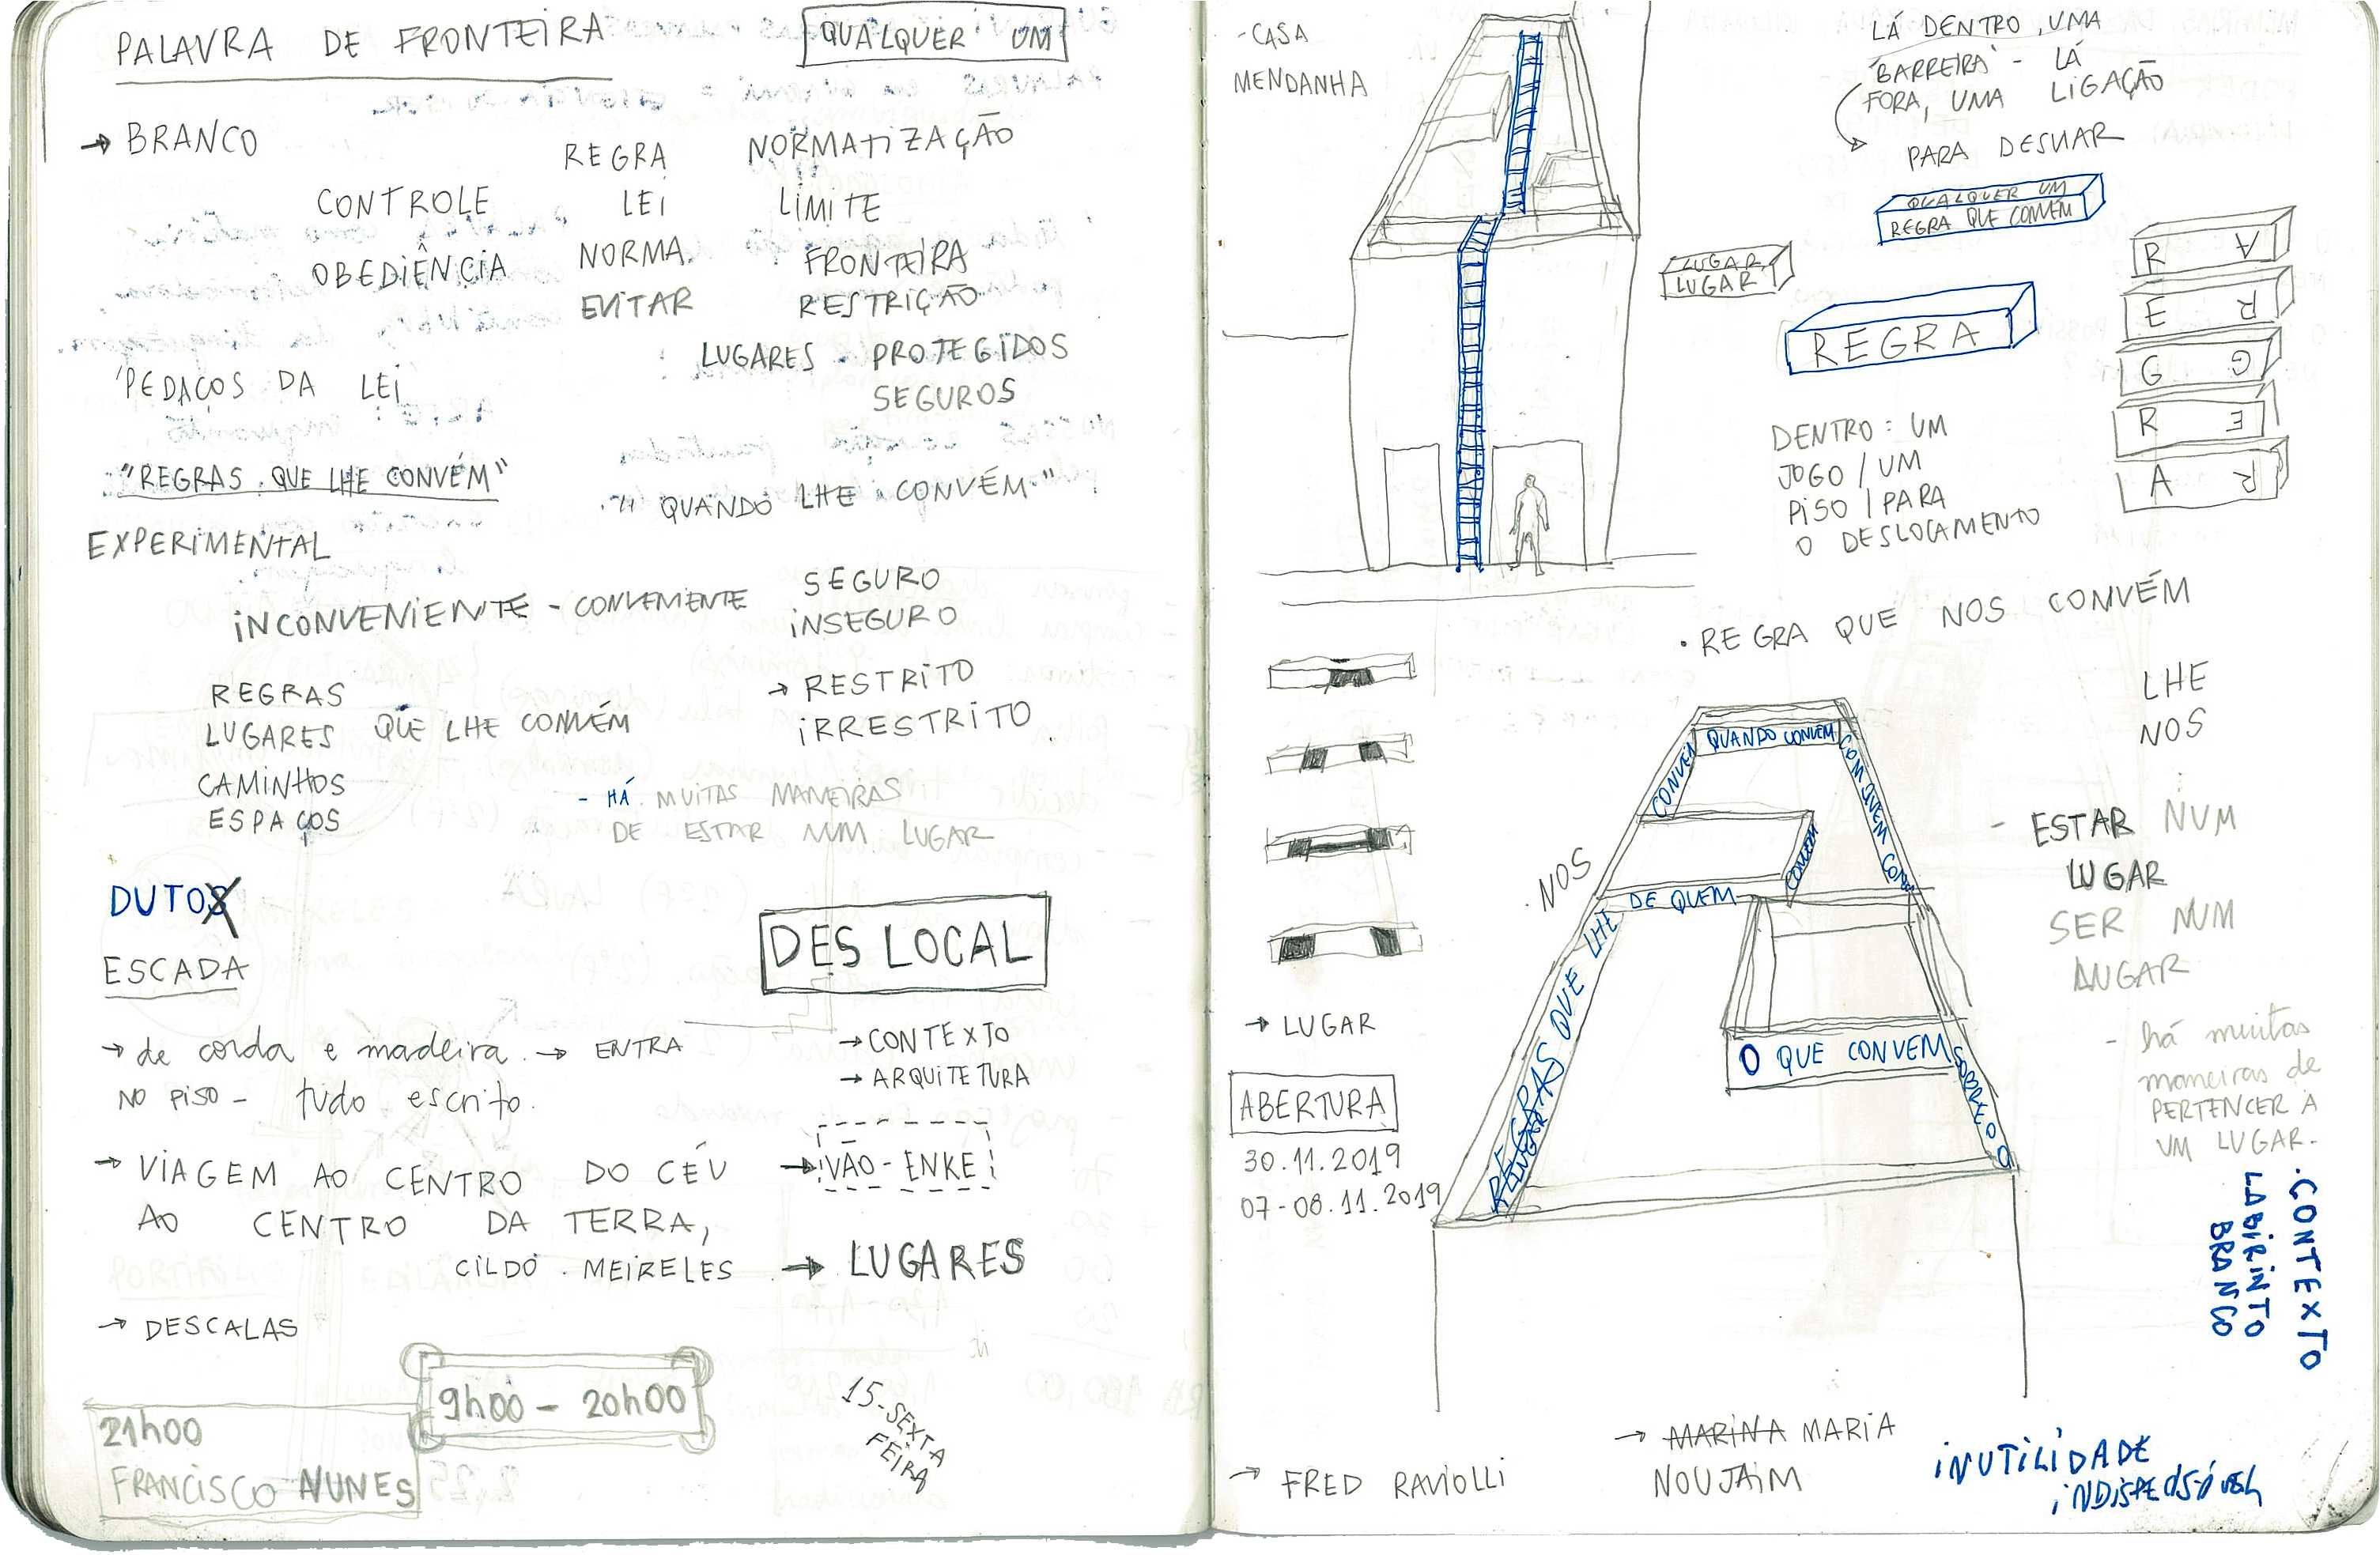 PALAVRA DE FRONTEIRA
QUALQUER UM
→ BRANCO
REGRA
NORMATIZAÇÃO
CONTROLE
LEI
LIMITE
OBEDIÊNCIA
NORMA
FRONTEIRA
EVITAR
RESTRIÇÃO
LUGARES - PROTEGIDOS
SEGUROS
'PEDAÇOS DA LEI
"REGRAS QUE LHE CONVÉM"
"QUANDO LHE CONVÉM"
EXPERIMENTAL
INCONVENIENTE - CONVENIENTE
SEGURO
INSEGURO
→ RESTRITO
IRRESTRITO
REGRAS
LUGARES QUE LHE CONVÉM
CAMINHOS
ESPAÇOS
- HÁ MUITAS MANEIRAS
DE ESTAR NUM LUGAR
DUTOS
ESCADA
DES LOCAL
→ de corda e madeira → ENTRA
NO PISO - tudo escrito.
→ CONTEXTO
→ ARQUITETURA
→ VIAGEM AO CENTRO DO CÉU
AO CENTRO DA TERRA,
CILDO MEIRELES
→ VÃO - ENKE
→ LUGARES
→ DESCALAS
9h00 - 20h00
21h00
FRANCISCO NUNES
15 - SEXTA
FEIRA
- CASA
MENDANHA
LÁ DENTRO, UMA
'BARREIRA' - LÁ
FORA, UMA LIGAÇÃO
PARA DESUAR
QUALQUER UM
REGRA QUE CONVÉM
LUGAR
LUGAR
REGRA
R A
E R
G G
R E
A R
DENTRO: UM
JOGO / UM
PISO / PARA
O DESLOCAMENTO
. REGRA QUE NOS CONVÉM
LHE
NOS
QUANDO CONVEM
CONVÉM
COM QUEM CONV
CONVEM
. NOS
DE QUEM
REGRAS QUE LHE
O QUE CONVEM
SOBRE O Q
- ESTAR NUM
LUGAR
SER NUM
LUGAR
- há muitas
maneiras de
PERTENCER A
UM LUGAR.
→ LUGAR
ABERTURA
30.11.2019
07-08.11.2019
. CONTEXTO
LABIRINTO
BRANCO
→ FRED RAVIOLLI
→ MARINA MARIA
NOUJAIM
INUTILIDADE